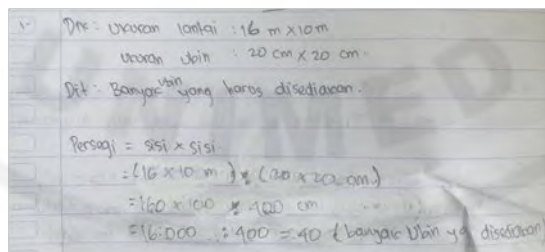 1- Dik : Ukuran lantai : 16 m x 10 m
Ukuran Ubin : 20 cm x 20 cm.
Dit : Banyak ubin yang harus disediakan.
Persegi = sisi x sisi.
= (16 x 10 m) : (20 x 20 cm)
= 160 x 100 : 400 cm
= 16.000 : 400 = 40 (banyak Ubin yg disediakan)